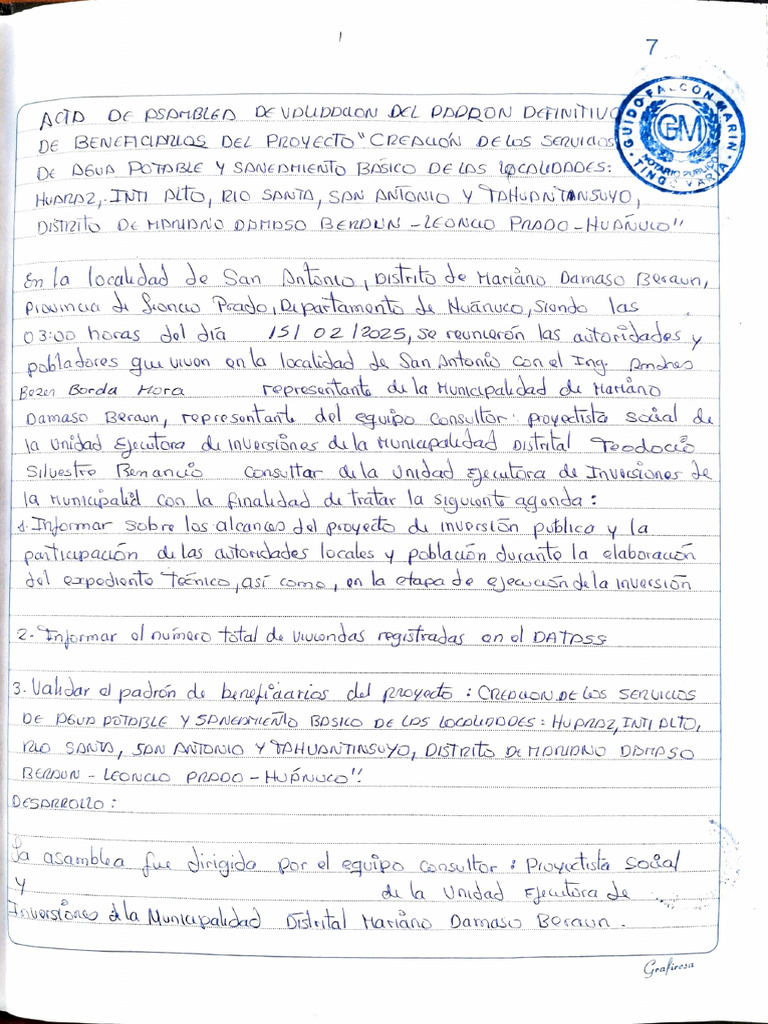 7
GUIDO FALCON MARIN
GFM
NOTARIO PUBLICO
TINGO MARIA
ACTA DE ASAMBLEA DE VALIDACION DEL PADRON DEFINITIVO
DE BENEFICIARIOS DEL PROYECTO "CREACIÓN DE LOS SERVICIOS
DE AGUA POTABLE Y SANEAMIENTO BÁSICO DE LAS LOCALIDADES:
HUARAZ, INTI ALTO, RIO SANTA, SAN ANTONIO Y TAHUANTANSUYO,
DISTRITO DE MARIANO DAMASO BERAUN - LEONCIO PRADO - HUÁNUCO"
En la localidad de San Antonio, Distrito de Mariano Damaso Beraun,
Provincia de Leoncio Prado, Departamento de Huánuco, siendo las
03:00 horas del día 15/02/2025, se reunierón las autoridades y
pobladores que viven en la localidad de San Antonio con el Ing. Andres
Borda Mora representante de la Municipalidad de Mariano
Damaso Beraun, representante del equipo consultor: proyectista social de
la Unidad Ejecutora de inversiones de la Municipalidad Distrital Teodocio
Silvestre Benancio Consultar de la Unidad Ejecutora de Inversiones de
la Municipalid con la finalidad de tratar la siguiente agenda:
1. Informar sobre los alcances del proyecto de inversión publico y la
participación de las autoridades locales y población durante la elaboración
del expediente técnico, así como, en la etapa de ejecución de la inversión
2.- Informar el número total de viviendas registradas en el DATASS
3. Validar el padrón de beneficiarios del proyecto: CREACION DE LOS SERVICIOS
DE AGUA POTABLE Y SANEAMIENTO BASICO DE LAS LOCALIDADES: HUARAZ, INTI ALTO,
RIO SANTA, SAN ANTONIO Y TAHUANTINSUYO, DISTRITO DE MARIANO DAMASO
BERAUN - LEONCIO PRADO - HUÁNUCO"
DESARROLLO:
La asamblea fue dirigida por el equipo consultor: Proyectista Social
y de la Unidad Ejecutora de
Inversiones de la Municipalidad Distrital Mariano Damaso Beraun.
Grafiresa